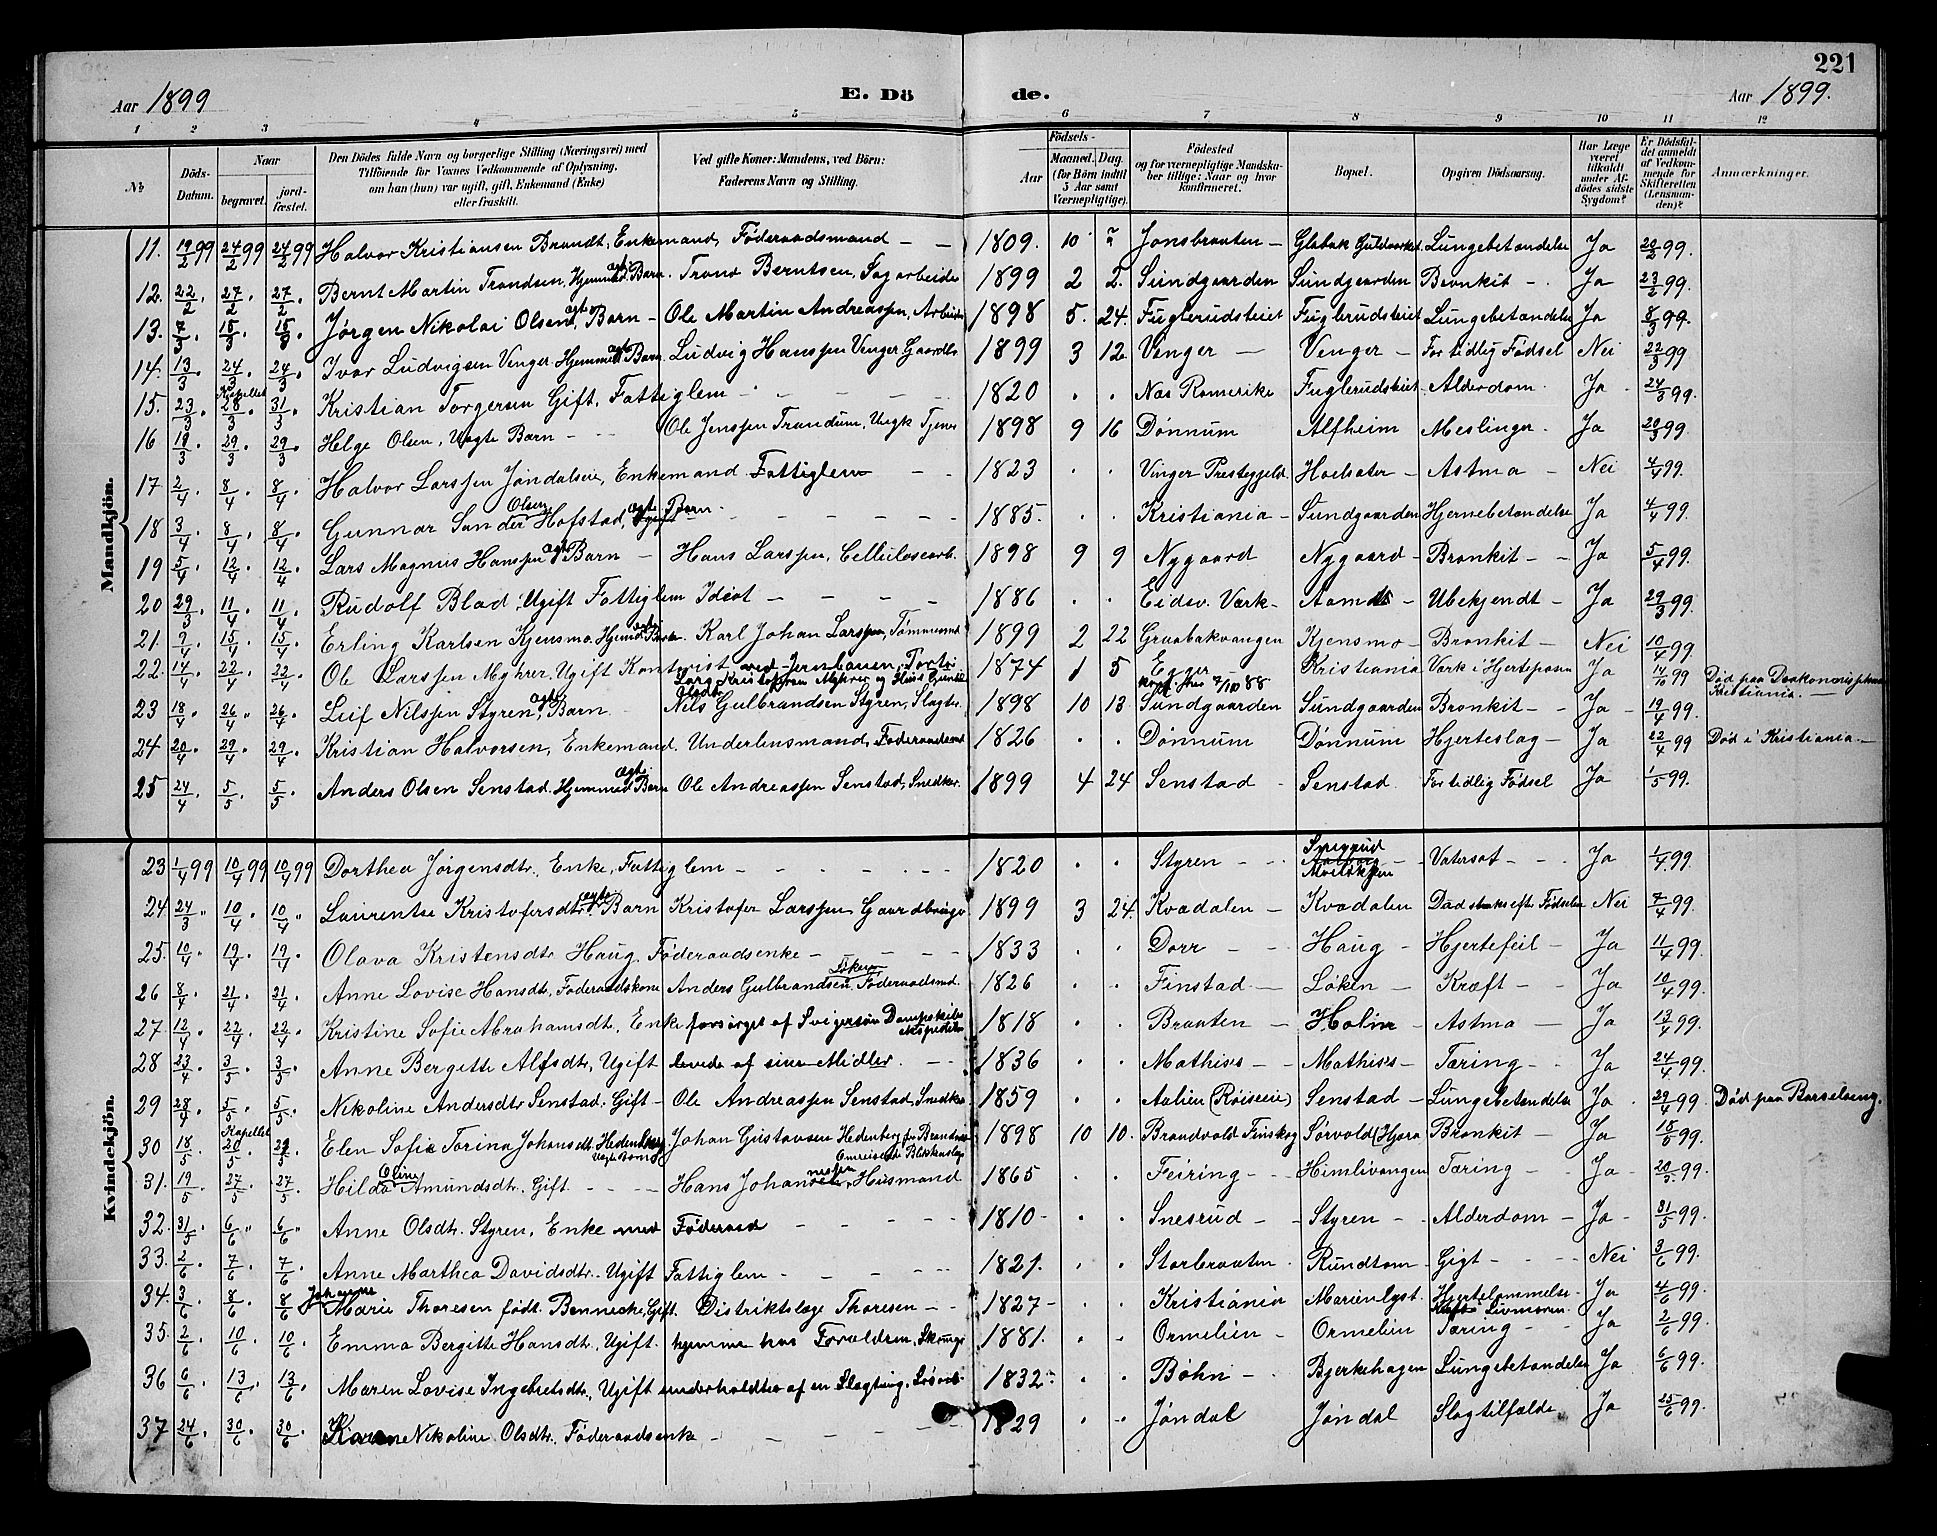 221
Aar 1899 E. Dö de. Aar 1899.
1 2 3 4 5 6 7 8 9 10 11 12
№ Döds-Datum. Naar begravet. jordfæstet. Den Dödes fulde Navn og borgerlige Stilling (Næringsvei) med Tilföiende for Voxnes Vedkommende af Oplysning, om han (hun) var ugift, gift, Enkemand (Enke) eller fraskilt. Ved gifte Koner: Mandens, ved Börn: Faderens Navn og Stilling. Födsels- Aar Maaned. Dag. (for Börn indtil 5 Aar samt Værnepligtige). Födested og for værnepligtige Mandskaber tillige: Naar og hvor konfirmeret. Bopæl. Opgiven Dödsaarsag. Har Læge været tilkaldt under Afdödes sidste Sygdom? Er Dödsfaldet anmeldt af Vedkommende for Skifteretten (Lensmanden)? Anmærkninger.
Mandkjön.
11. 19/2 99 24/2 99 24/2 99 Halvor Kristiansen Brandt, Enkemand, Föderaadsmand – – 1809. 10 Jonsbraaten – Guldværket Lungebetændelse Ja 20/2 99.
12. 22/2. 27/2. 27/2. Bernt Martin Trondsen, Hjemmed. ægte Barn. Trond Berntsen, Sagarbeider 1899 2 2. Sundgaarden Sundgaarden Bronkit – Ja 23/2 99.
13. 7/3. 15/3. 15/3. Jørgen Nikolai Olsen, ægte Barn – Ole Martin Andreassen, Arbeider 1898 5. 24. Fuglerudsteiet Fuglerudsteiet Lungebetændelse Ja 8/3 99.
14. 13/3. 24/3. 24/3. Ivar Ludvigsen Venger Hjemmed. ægte Barn. Ludvig Hanssen Venger Gaardbr. 1899 3 12. Venger – Venger – For tidlig Födsel Nei 22/3 99
15. 23/3. Kapellet 28/3. 31/3 Kristian Torgersen Gift, Fattiglem – – – – 1820 . . Næs Romerike Fuglerudsteiet Alderdom. Ja. 24/3 99.
16 19/3 29/3. 29/3. Helge Olsen, Uægte Barn – – Ole Jenssen Trandum, Ungk Tjener 1898 9 16 Dønnum Alfheim Meslinger. Ja 20/3 99.
17 2/4. 8/4. 8/4. Halvor Larssen Jøndalseie, Enkemand Fattiglem – – 1823 . . Vinger Prestegjeld Hoelsæter – Astma – Nei 4/4 99.
18 3/4. 8/4. 8/4. Gunnar Sander Olsen Hofstad, ægte Barn. – – – – 1885. . . Kristiania – Sundgaarden Hjernebetændelse Ja 4/4 99.
19 5/4. 12/4. 12/4. Lars Magnus Hanssen ægte Barn – Hans Larssen, Cellulosearb. 1898 9 9 Nygaard Nygaard – Bronkit – – Ja 5/4 99.
20 29/3. 11/4. 11/4. Rudolf Blad, Ugift Fattiglem Idiot – – – – 1886 . . Eidsv. Værk – – Ubekjendt – Ja 29/3 99.
21. 9/4. 15/4. 15/4. Erling Karlsen Kjensmo, Hjemmed. ægte Barn. Karl Johan Larssen, Tømmermd 1899 2 22 Graabækvangen Kjensmo – Bronkit – Nei 10/4 99
22. 14/4. 22/4. 22/4. Ole Larssen Myhrer, Ugift Kontorist ved Jernbanen, Forældre Lars Kristofersen Myhrer og Hans 1874 1 5 Egger konf. 7/10 88 Kristiania Værk i Hjerteposen Ja 99 Død paa Diakonissehuset Kristiania. –
23 18/4. 26/4 26/4. Leif Nilssen Styren, ægte Barn. Nils Gulbrandsen Styren, Slagter. 1898 10 13 Sundgaarden Sundgaarden Bronkit – – Ja – 19/4 99.
24 20/4. 29/4. 29/4. Kristian Halvorsen, Enkemand. Underlensmand, Föderaadsmd 1826 . . Dönnum Dönnum Hjerteslag – Ja 22/4 99 Död i Kristiania. –
25 24/4. 5/5. 5/5. Anders Olsen Senstad. Hjemmed. ægte Barn Ole Andreassen Senstad, Snedker. 1899 4 24 Senstad – Senstad. For tidlig Födsel Ja 1/5 99.
Kvindekjön.
23 1/4 99 10/4 99 10/4 99 Dorthea Jørgensdtr. Enke, Fattiglem – – – – 1820 . . Styren – – Vatersot – – Ja 1/4 99.
24. 24/3 10/4. 10/4. Laurentse Kristofersdtr ægte Barn Kristofer Larssen Gaardbruger 1899 3 24. Kvædalen – Kvædalen Död straks efter Födselen Nei 7/4 99.
25. 10/4. 19/4. 19/4. Olava Kristensdtr Haug. Föderaadsenke – – – – 1833 . . Dorr – – Haug – Hjertefeil – Ja 11/4 99.
26 8/4. 21/4. 21/4. Anne Lovise Hansdtr, Föderaadskone Anders Gulbrandsen Løken Föderaadsmd. 1826 . . Finstad – Løken – Kræft – – Ja 10/4 99.
27. 12/4. 22/4. 22/4. Kristine Sofie Abrahamsdtr, Enke forsørget af Svigersøn Dampskibsekspeditør 1818 . . Braaten – Holm – Astma – Ja 13/4 99.
28 23/4. 3/5. 3/5. Anne Bergitte Alfsdtr, Ugift levede af sine Midler. – – 1836 . . Mathises – – Mathises – Tæring – – Ja 24/4 99.
29 28/4. 5/5. 5/5. Nikoline Andersdtr Senstad. Gift – Ole Andreassen Senstad, Snedker 1859 . . Aalien (Röiseeie) Senstad – Lungebetændelse Ja. 29/4 99. Död paa Barselseng.
30 18/5. Kapellet 20/5. Elen Sofie Torina Johansdtr Hedenberg Uægte Barn. Johan Gustavsen Hedenberg fra 1898 10 10. Brandvold Finskog Sørvold Bronkit – Ja 18/5 99.
31. 19/5. 27/5. 27/5. Hilda Oline Amundsdtr. Gift – – – – Hans Johannessen, Husmand 1865 . . Feiring – – Himlivangen Tæring – – Ja. 20/5 99.
32. 31/5. 6/6 6/6. Anne Olsdtr. Styren, Enke med Föderaad – – – – 1810 – . . Snesrud – – Styren – – Alderdom – Ja – 31/5 99.
33. 2/6. 7/6. 7/6. Anne Marthea Davidsdtr. Ugift Fattiglem – – – – 1821. . . Storbraaten – Rundtom Gigt – – – Nei 3/6 99.
34. 3/6. 8/6. 8/6 Johanne Marie Thoresen født Bennecke, Gift. Distriktslæge Thoresen – – 1827 – . . Kristiania Marienlyst. Hjertelammelse Livmoren. Ja 4/6 99.
35. 2/6. 10/6. 10/6. Emma Bergitte Hansdtr, Ugift. hjemme hos Forældren, 1881. . . Ormelien – Ormelien Tæring – – Ja 2/6 99.
36 6/6. 13/6. 13/6. Maren Lovise Ingebretsdtr, Ugift underholdtes af en Slægtning. 1832 – . . Bøhn – Bjerkehagen Lungebetændelse Ja 6/6 99.
37 24/6. 30/6. 30/6. Karen Nikoline Olsdtr. Föderaadsenke – – – – 1829 . . Jøndal Jøndal Slagtilfælde Ja 25/6 99.